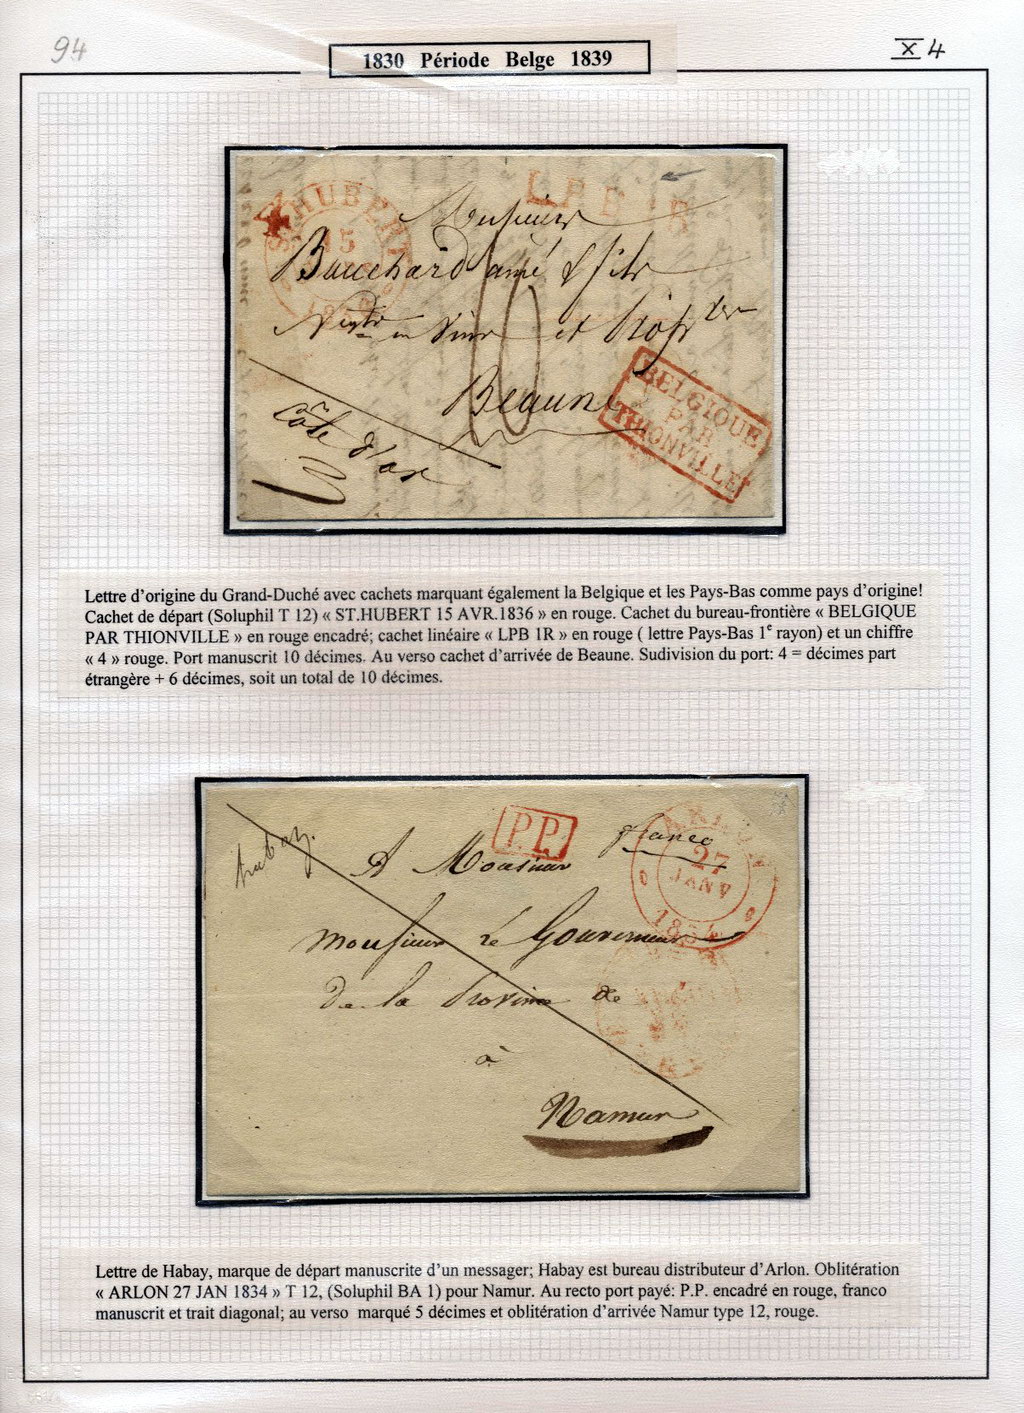 94
1830 Période Belge 1839
X 4
ST HUBERT
15
LPB 1R
Monsieur
Bouchard ainé & fils
Negts en Vins et Propr
10
Beaune
Côte d'or
BELGIQUE
PAR
THIONVILLE
Lettre d'origine du Grand-Duché avec cachets marquant également la Belgique et les Pays-Bas comme pays d'origine!
Cachet de départ (Soluphil T 12) « ST.HUBERT 15 AVR.1836 » en rouge. Cachet du bureau-frontière « BELGIQUE
PAR THIONVILLE » en rouge encadré; cachet linéaire « LPB 1R » en rouge ( lettre Pays-Bas 1e rayon) et un chiffre
« 4 » rouge. Port manuscrit 10 décimes. Au verso cachet d'arrivée de Beaune. Sudivision du port: 4 = décimes part
étrangère + 6 décimes, soit un total de 10 décimes.
habay.
P.P.
franco
ARLON
27
JANV
1834
A Monsieur
Monsieur le Gouverneur
de la Province de
à
Namur
Lettre de Habay, marque de départ manuscrite d'un messager; Habay est bureau distributeur d'Arlon. Oblitération
« ARLON 27 JAN 1834 » T 12, (Soluphil BA 1) pour Namur. Au recto port payé: P.P. encadré en rouge, franco
manuscrit et trait diagonal; au verso marqué 5 décimes et oblitération d'arrivée Namur type 12, rouge.